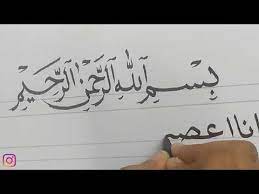 بِسْمِ ٱللَّهِ ٱلرَّحْمَٰنِ ٱلرَّحِيْمِ
انا اعصم